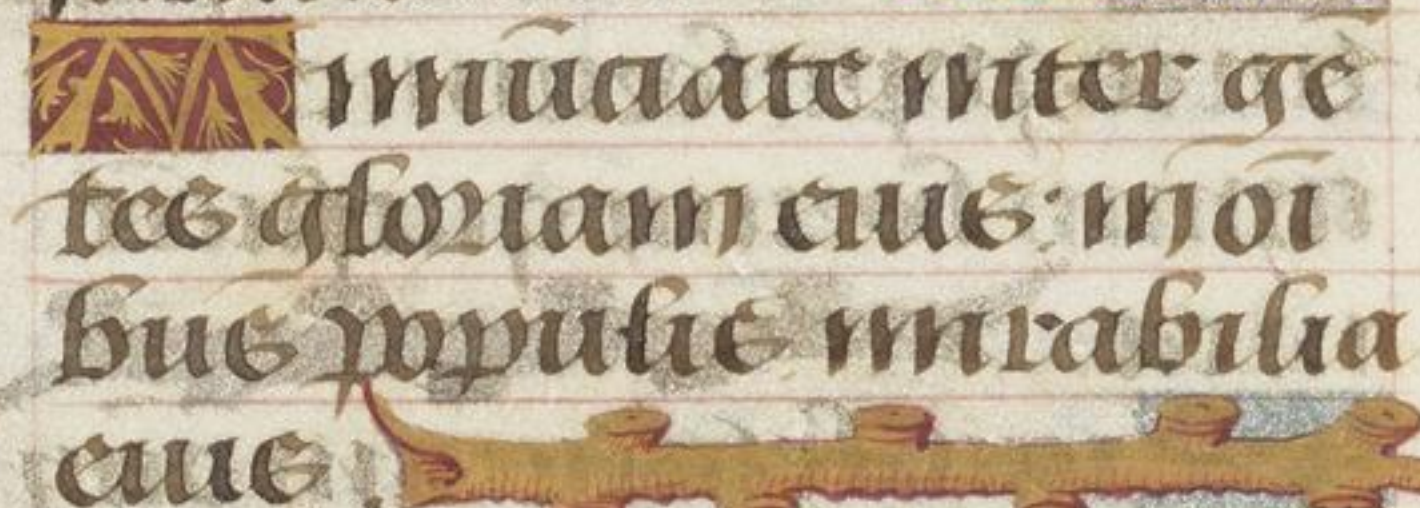 Annūciate inter gē
tes gloriam eius: in oī
bus populis mirabilia
eius.